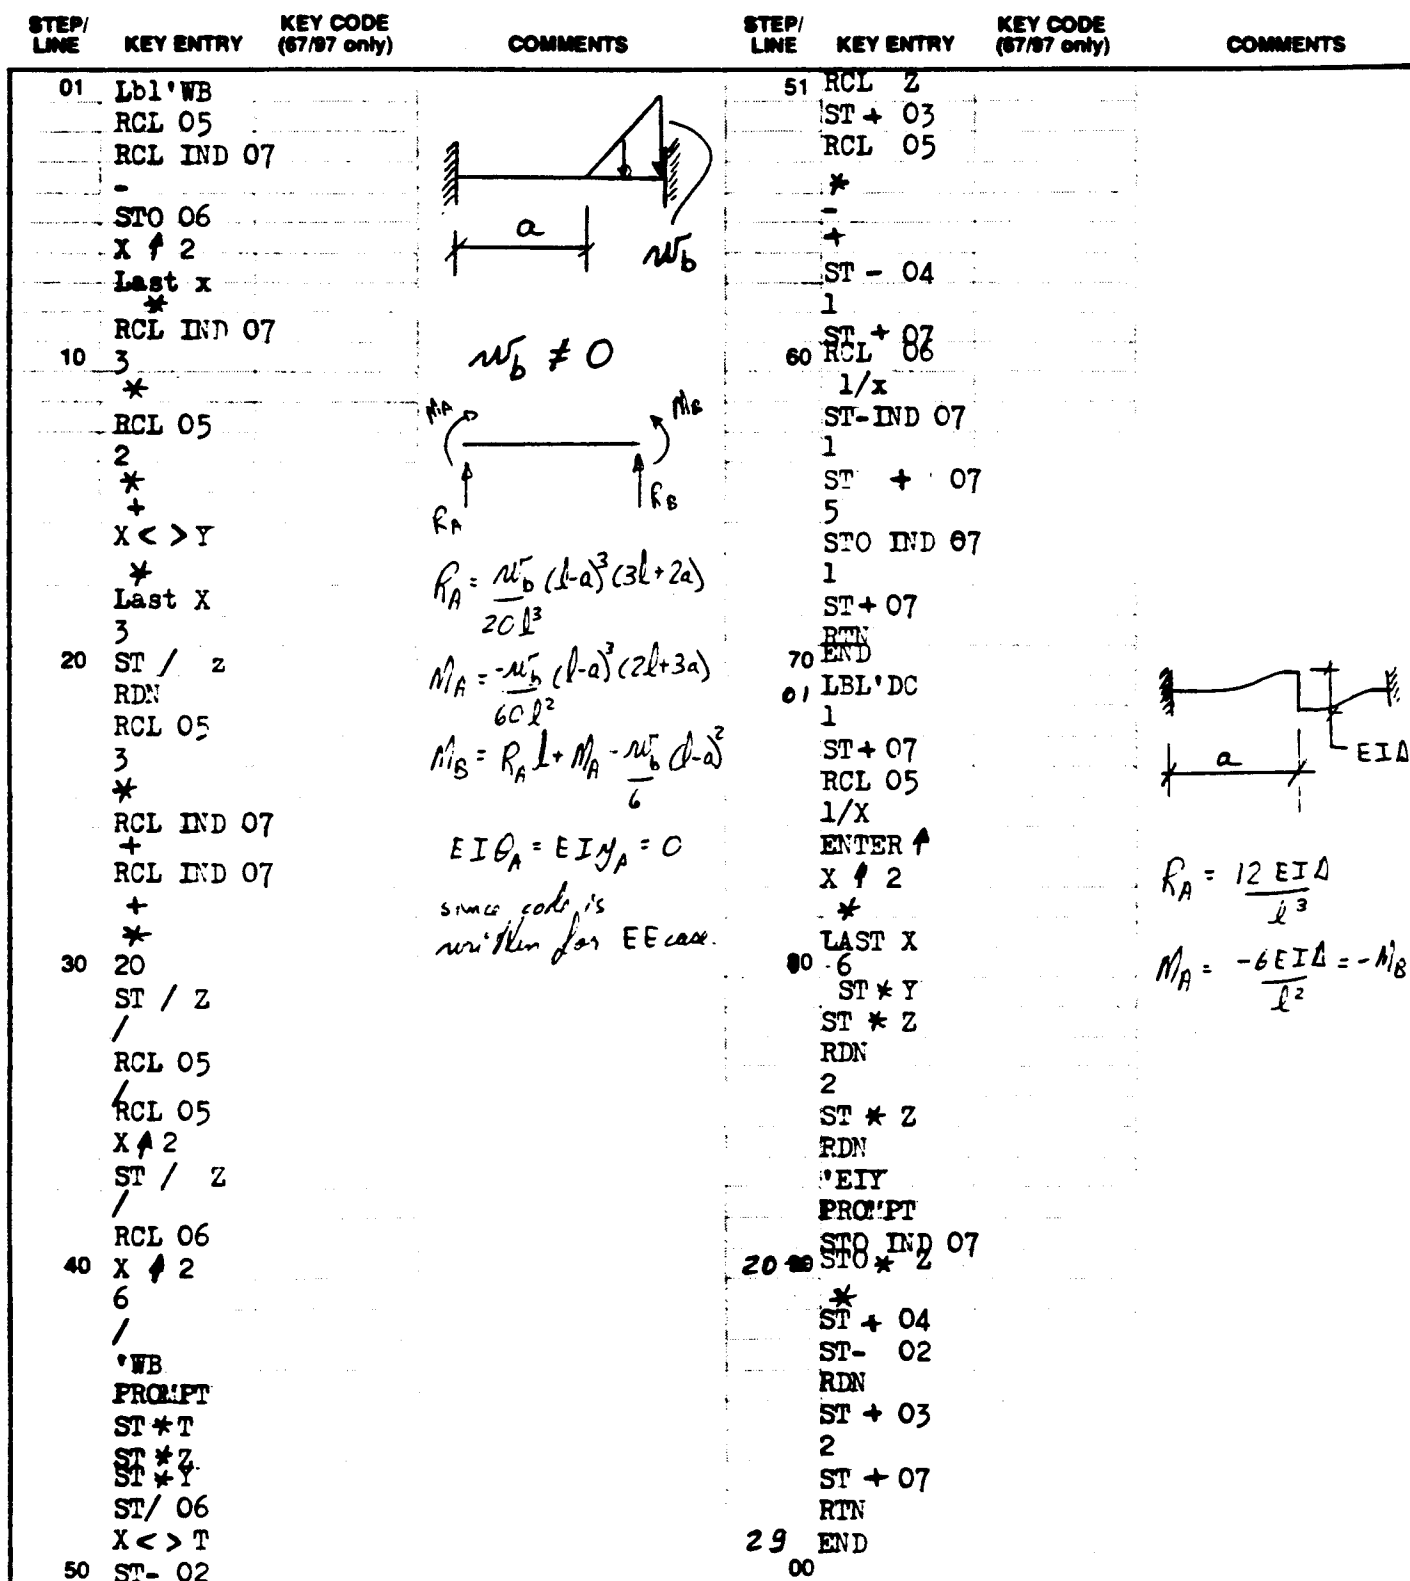 STEP/ LINE KEY ENTRY KEY CODE (67/97 only) COMMENTS
01 Lbl'WB
RCL 05
RCL IND 07
-
STO 06
X ↑ 2
Last x
*
RCL IND 07
10 3
*
RCL 05
2
*
+
X < > Y
*
Last X
3
20 ST / z
RDN
RCL 05
3
*
RCL IND 07
+
RCL IND 07
+
*
30 20
ST / Z
/
RCL 05
/
RCL 05
X ↑ 2
ST / Z
/
RCL 06
40 X ↑ 2
6
/
'WB
PROMPT
ST * T
ST * Z
ST * Y
ST/ 06
X < > T
50 ST- 02
a
w_b
w_b ≠ 0
M_A M_B
R_A R_B
R_A = w_b/20l³ (l-a)³ (3l+2a)
M_A = -w_b/60l² (l-a)³ (2l+3a)
M_B = R_A l + M_A - w_b/6 (l-a)²
EIθ_A = EIy_A = 0
since code is
written for EE case.
STEP/ LINE KEY ENTRY KEY CODE (67/97 only) COMMENTS
51 RCL Z
ST + 03
RCL 05
*
-
+
ST - 04
1
ST + 07
60 RCL 06
1/x
ST-IND 07
1
ST + 07
5
STO IND 07
1
ST+ 07
RTN
70 END
01 LBL'DC
1
ST+ 07
RCL 05
1/X
ENTER ↑
X ↑ 2
*
LAST X
80 6
ST * Y
ST * Z
RDN
2
ST * Z
RDN
'EIY
PROMPT
STO IND 07
20 STO * Z
*
ST + 04
ST- 02
RDN
ST + 03
2
ST + 07
RTN
29 END
00
a
EIΔ
R_A = 12 EIΔ/l³
M_A = -6EIΔ/l² = -M_B